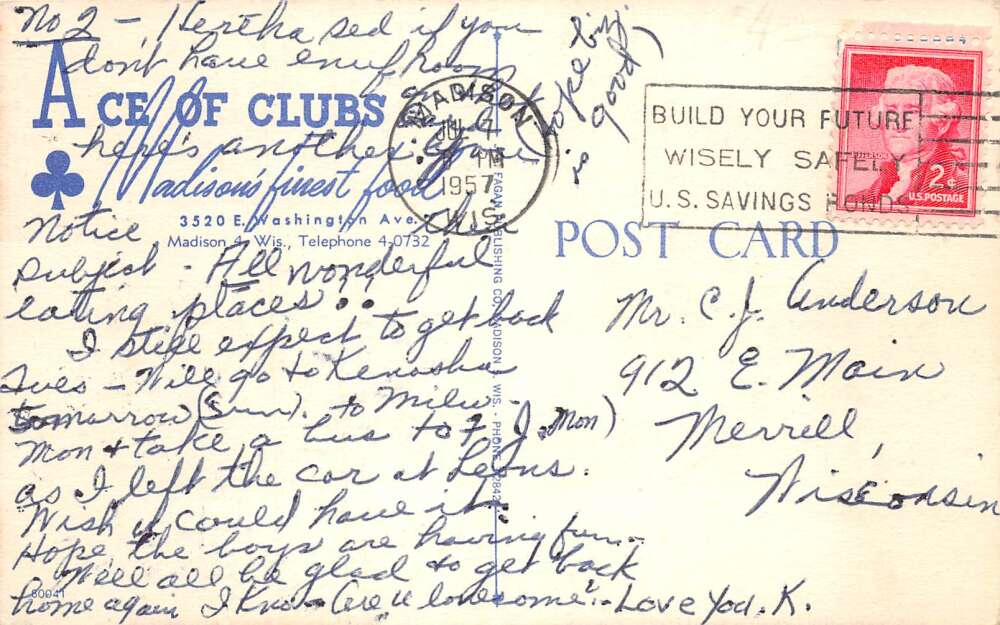 No 2 - Hertha sed if you
don't have enuf room
ACE OF CLUBS
here's another
Madison's finest food
3520 E. Washington Ave.
Madison 4, Wis., Telephone 4-0732
Notice this
subject - All wonderful
eating places..
I still expect to get back
Tues - Will go to Kenosha
tomarrow (Sun). to Milw.
Mon & take a bus to F J. Mon)
as I left the car at Leons.
Wish u could have it.
Hope the boys are having fun..
Will all be glad to get back
home again I kno - Are u lonesome? - Love You. K.
80041
hope biz.
is good)
MADISON
JUL 7
PM
1957
WIS.
BUILD YOUR FUTURE
WISELY SAFELY
U.S. SAVINGS BONDS
2¢
U.S. POSTAGE
POST CARD
Mr. C. J. Anderson
912 E. Main
Merrill,
Wisconsin